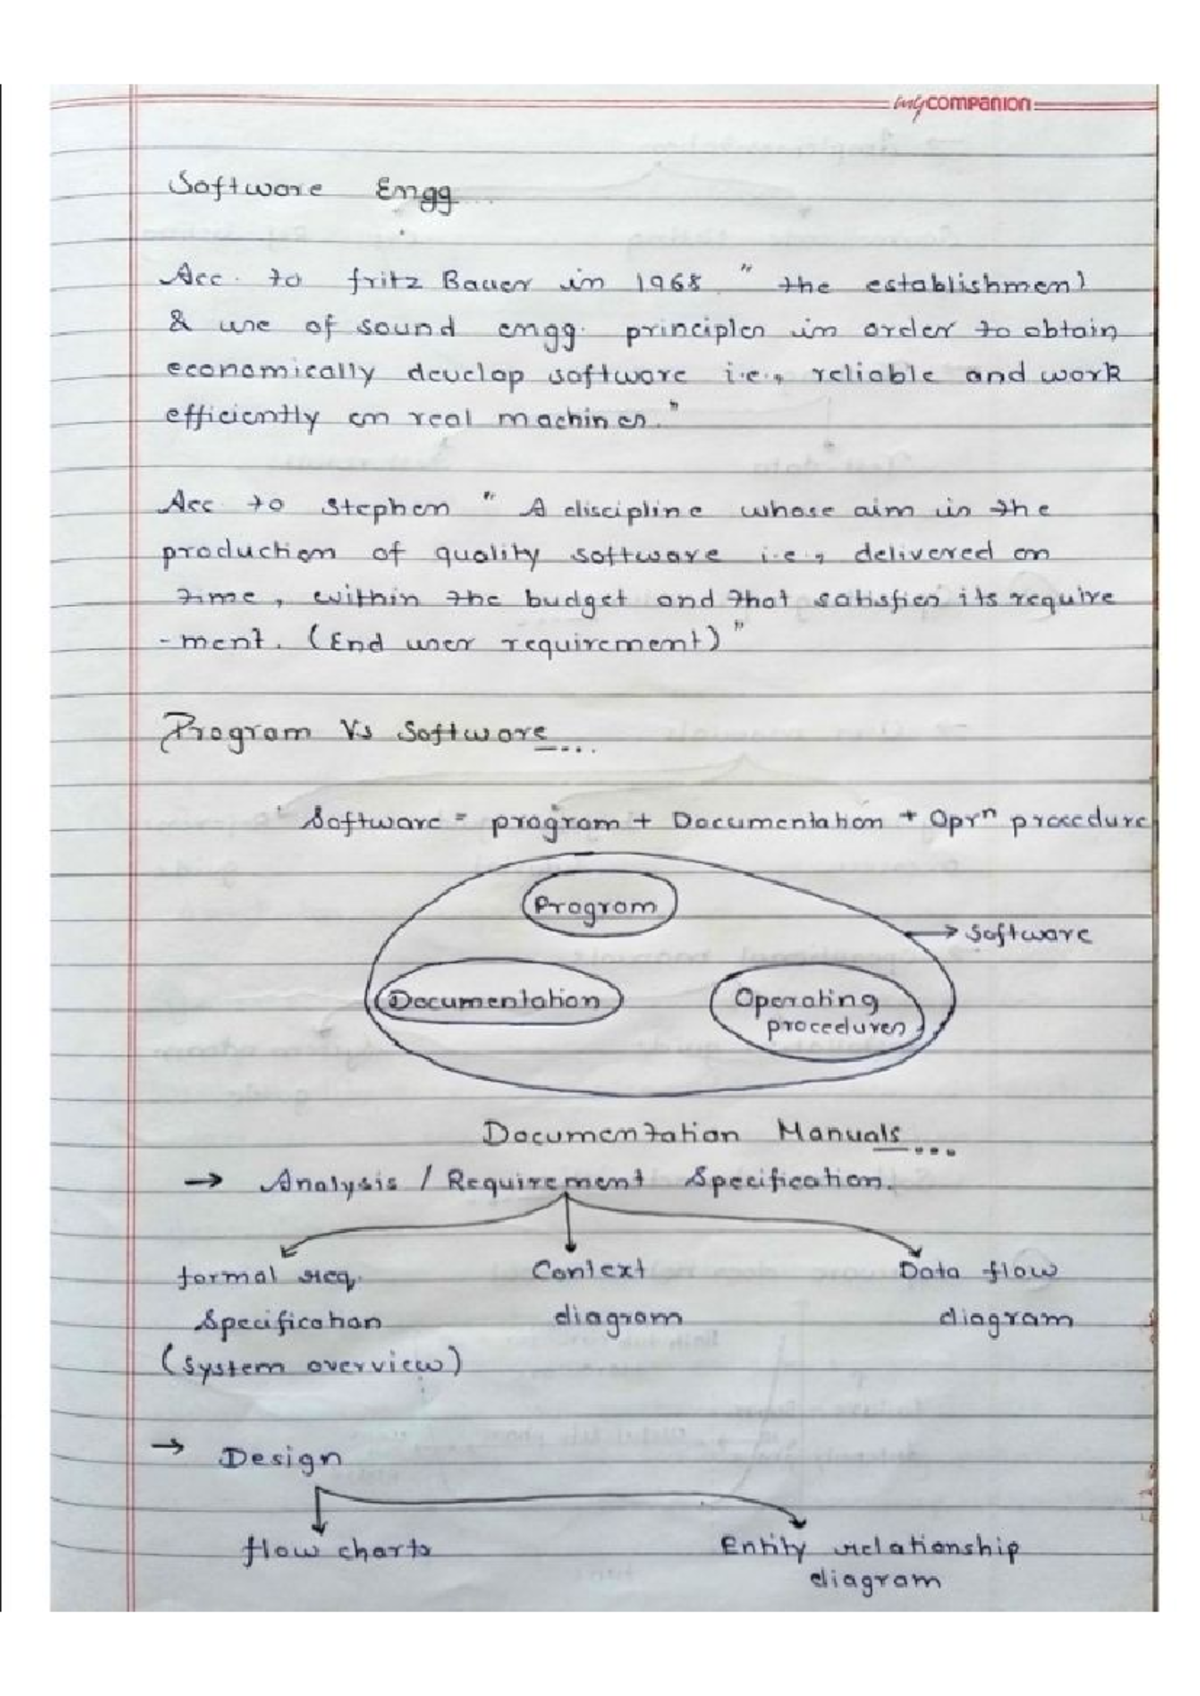 my companion
Software Engg
Acc. to fritz Bauer in 1968 " the establishment
& use of sound engg. principles in order to obtain
economically develop software i.e., reliable and work
efficiently on real machines."
Acc. to Stephen " A discipline whose aim is the
production of quality software i.e., delivered on
time, within the budget and that satisfies its require
-ment. (End user requirement)"
Program Vs Software....
Software = program + Documentation + Oprⁿ procedure
Program
→ Software
Documentation
Operating
procedures
Documentation Manuals....
→ Analysis / Requirement Specification.
formal req. Context Data flow
Specification diagram diagram
(System overview)
→ Design
flow charts Entity relationship
diagram